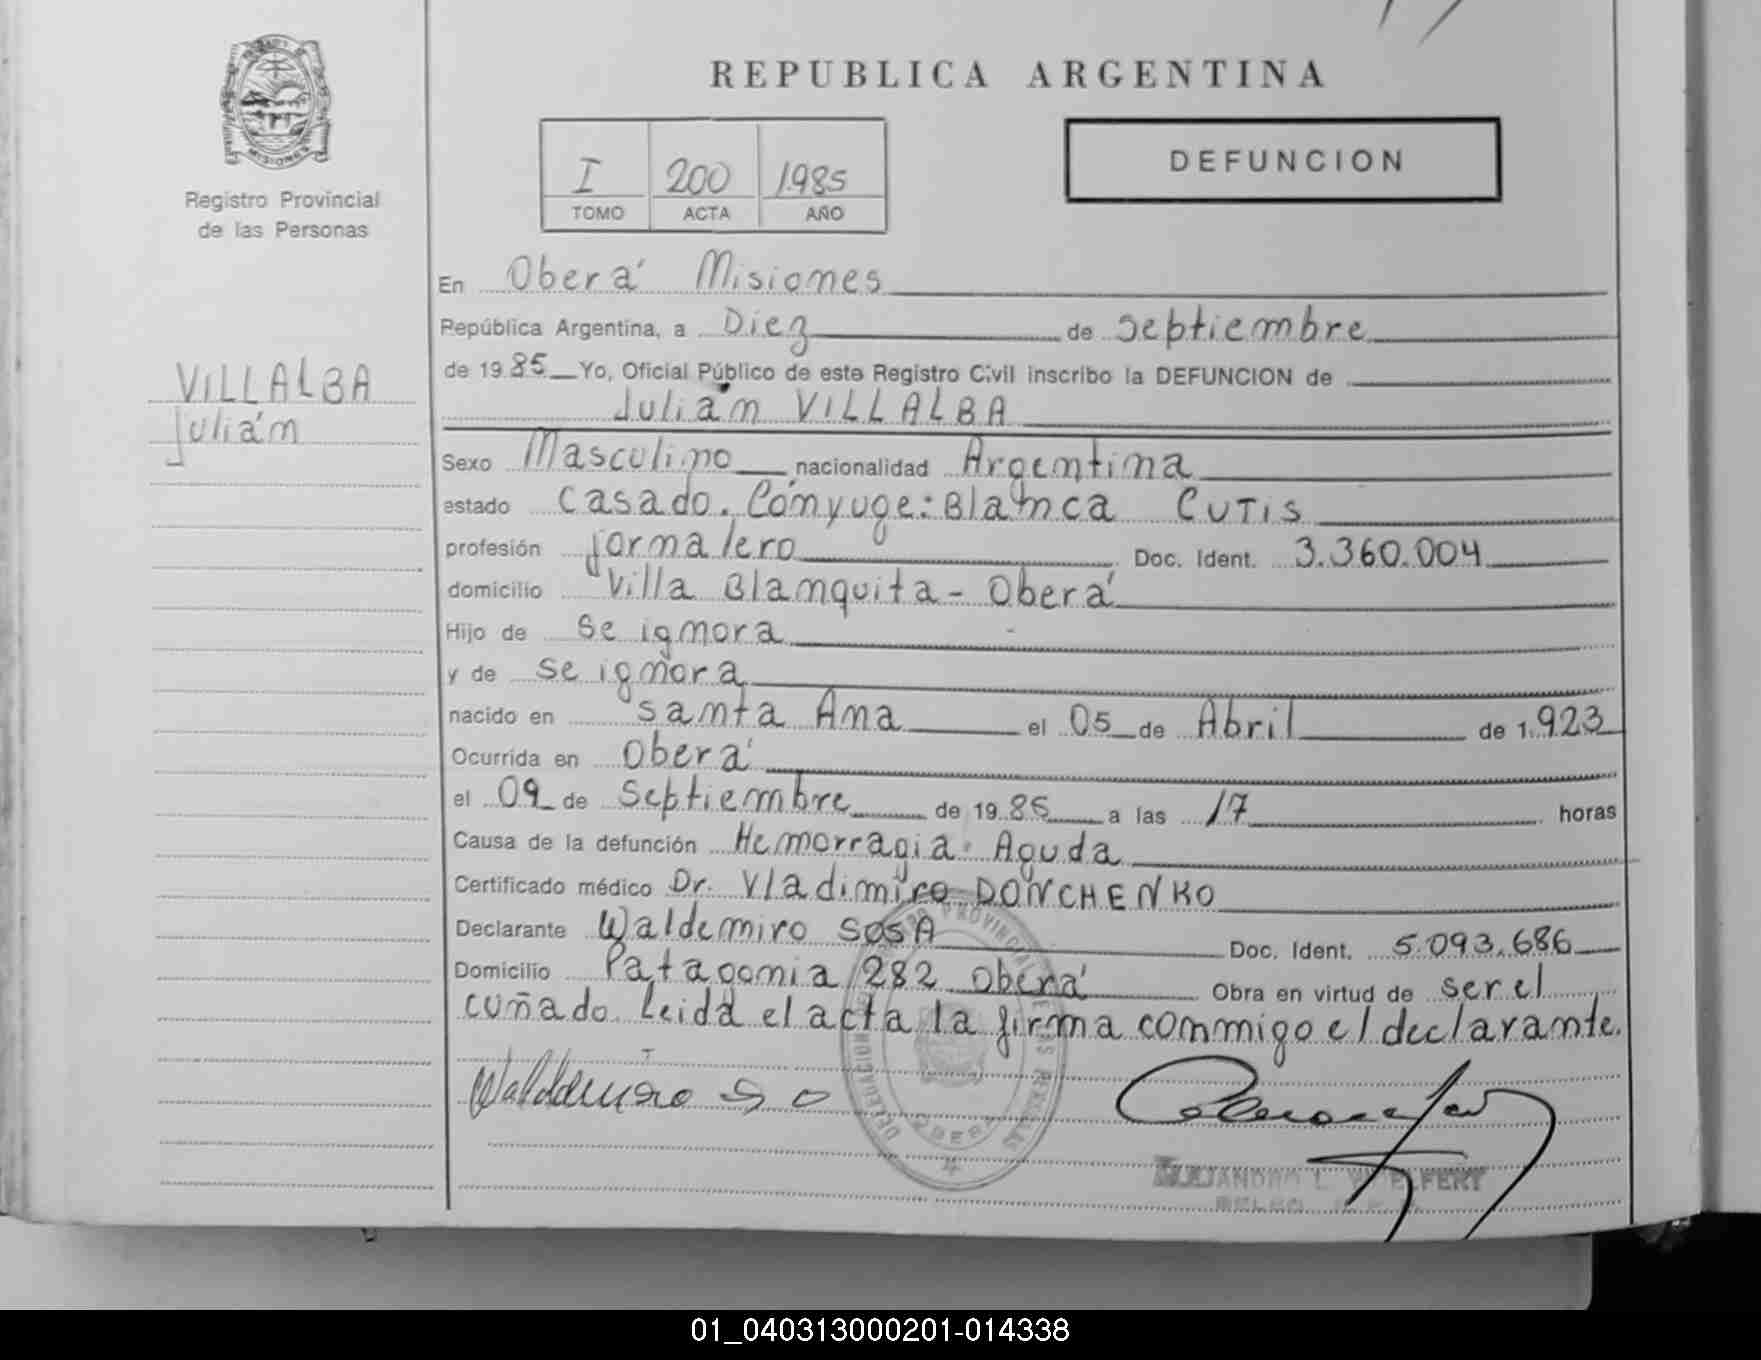 REPUBLICA ARGENTINA
MISIONES
Registro Provincial
de las Personas
I 200 1985
TOMO ACTA AÑO
DEFUNCION
VILLALBA
Julián
En Oberá Misiones
República Argentina, a Diez de Septiembre
de 1985 Yo, Oficial Público de este Registro Civil inscribo la DEFUNCION de
Julián VILLALBA
Sexo Masculino nacionalidad Argentina
estado casado. Cónyuge: Blanca CUTIS
profesión jornalero Doc. Ident. 3.360.004
domicilio Villa Blanquita - Oberá
Hijo de se ignora
y de se ignora
nacido en Santa Ana el 05 de Abril de 1.923
Ocurrida en Oberá
el 09 de Septiembre de 1985 a las 17 horas
Causa de la defunción Hemorragia Aguda
Certificado médico Dr. Vladimiro DONCHENKO
Declarante Waldemiro SOSA Doc. Ident. 5.093.686
Domicilio Patagonia 282 Oberá Obra en virtud de ser el
cuñado. Leida el acta la firma conmigo el declarante.
Waldemiro
OBERA
01_040313000201-014338